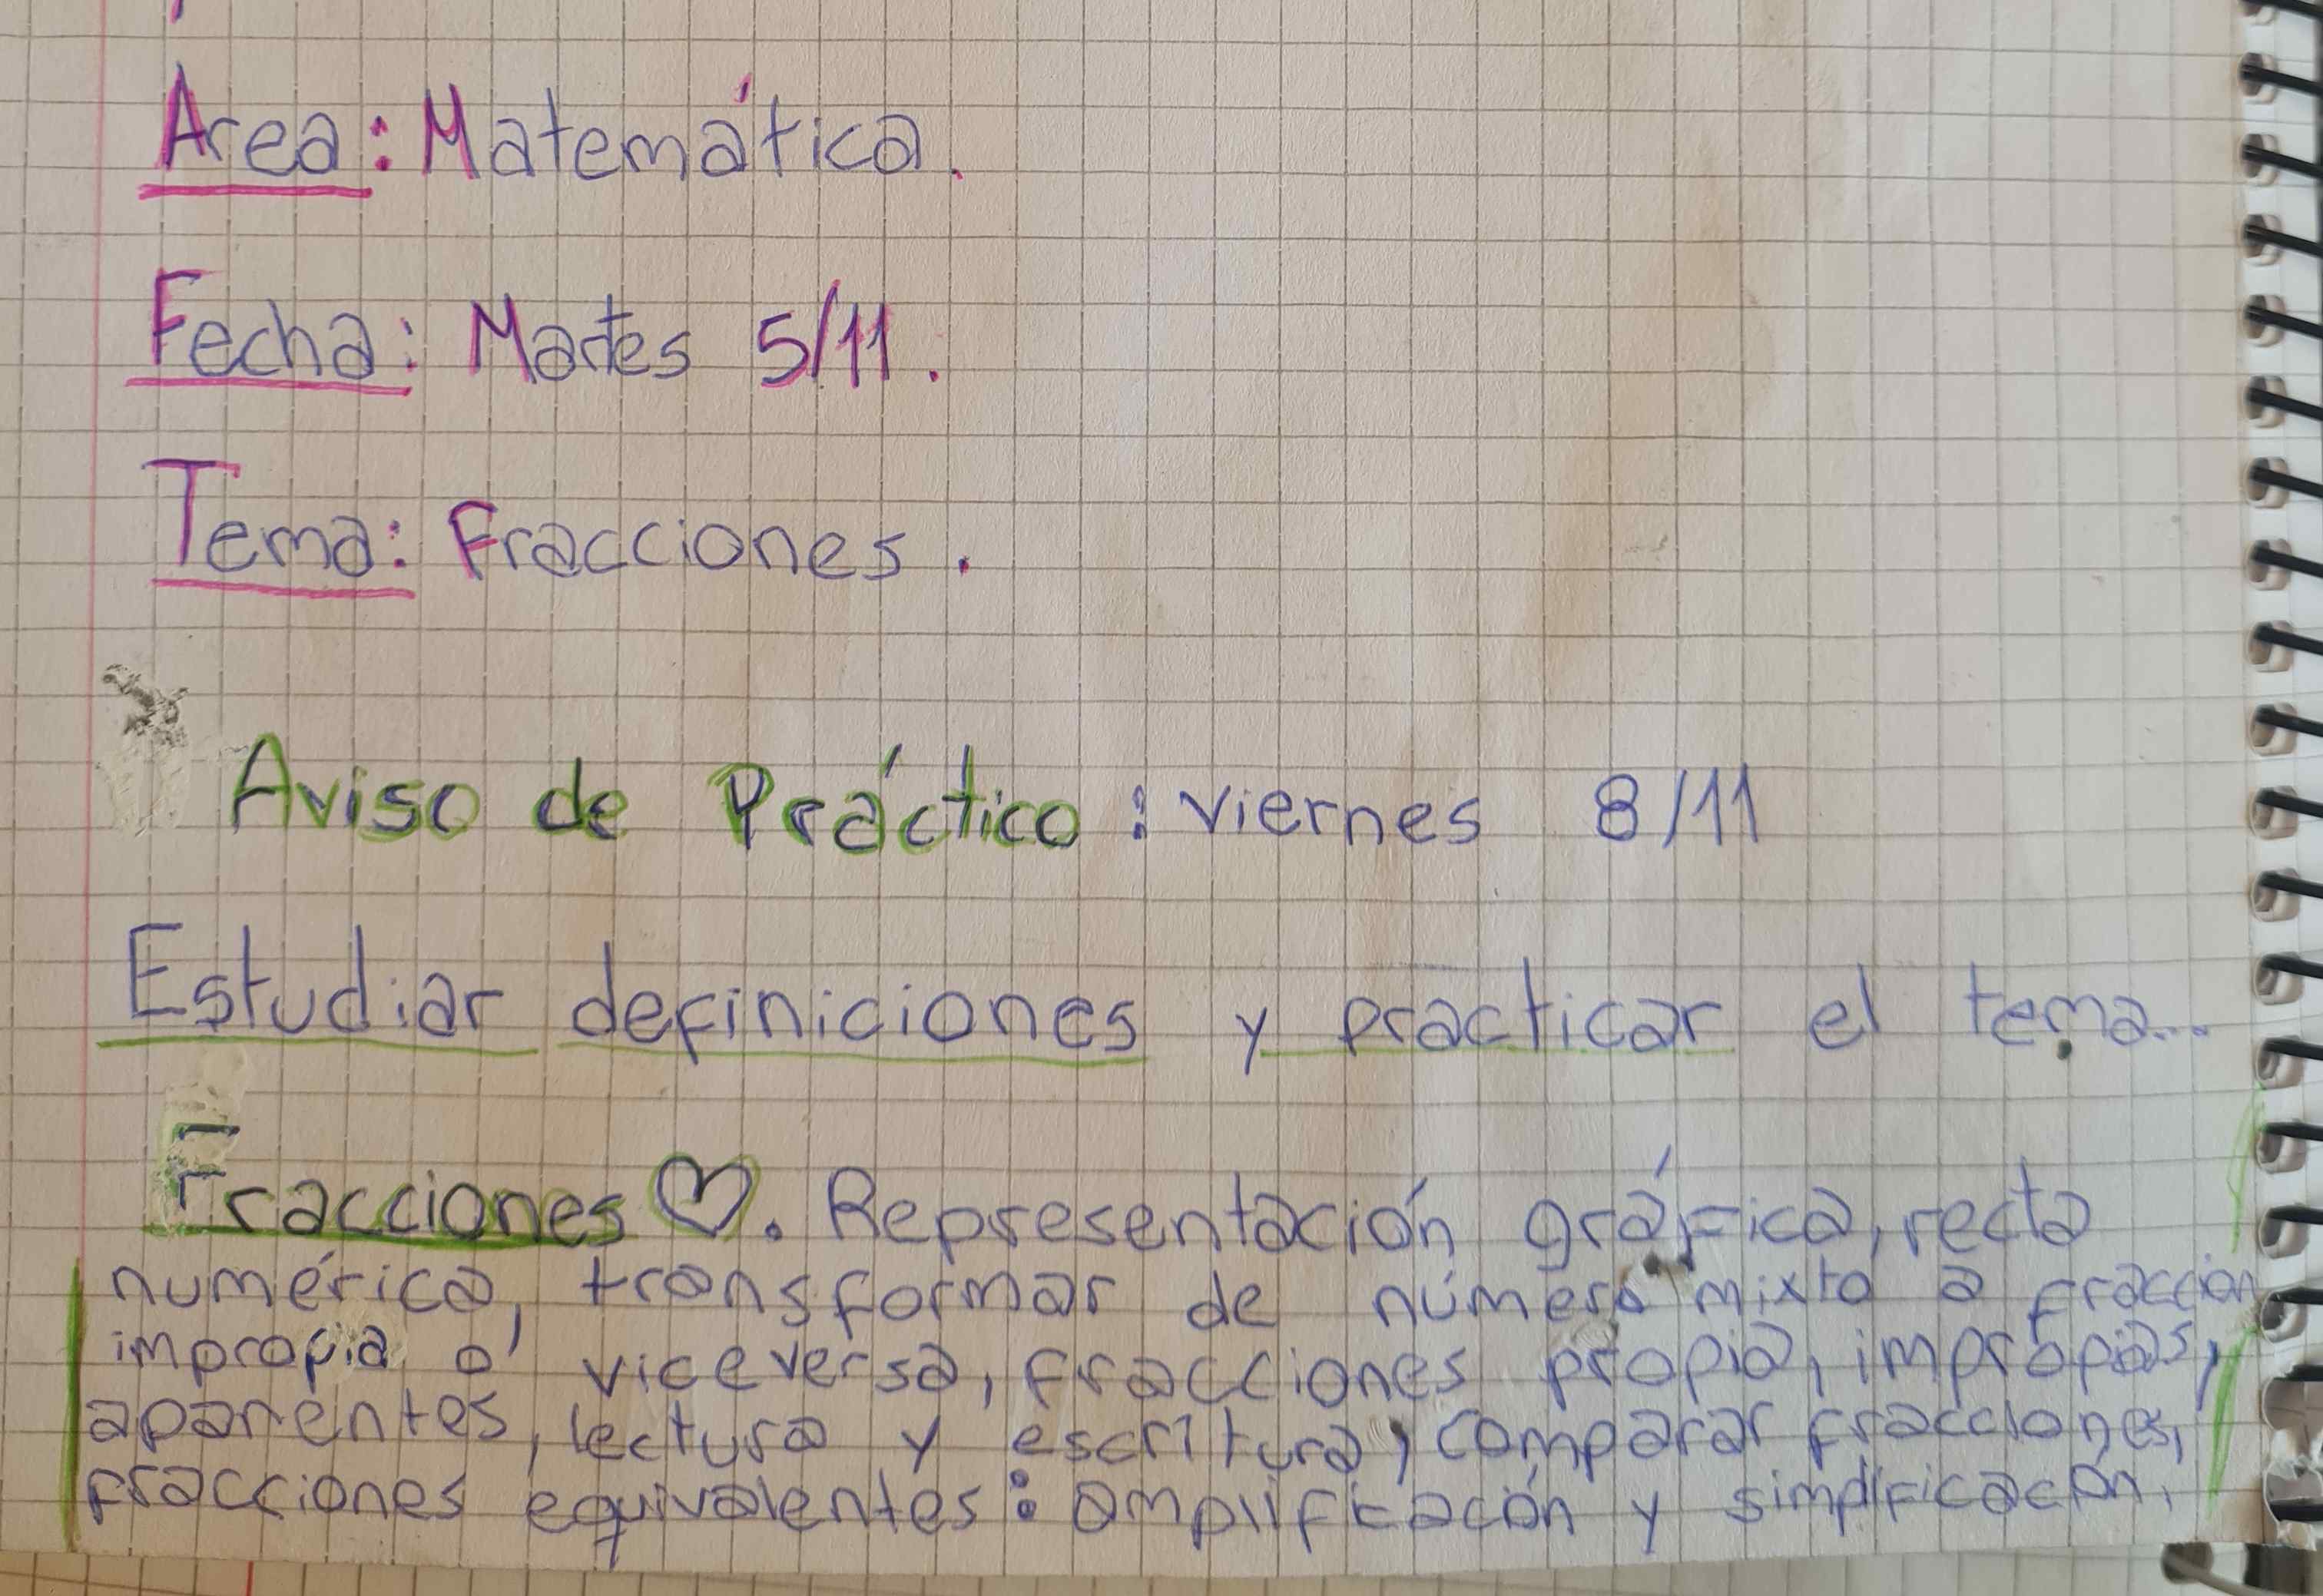 Area: Matemática.
Fecha: Martes 5/11.
Tema: Fracciones.
Aviso de Práctico: viernes 8/11
Estudiar definiciones y practicar el tema...
Fracciones ♡. Representación gráfica, recta
numérica, transformar de número mixto a fracción
impropia o viceversa, fracciones propia, impropias,
aparentes, lectura y escritura, comparar fracciones,
fracciones equivalentes: amplificación y simplificación,